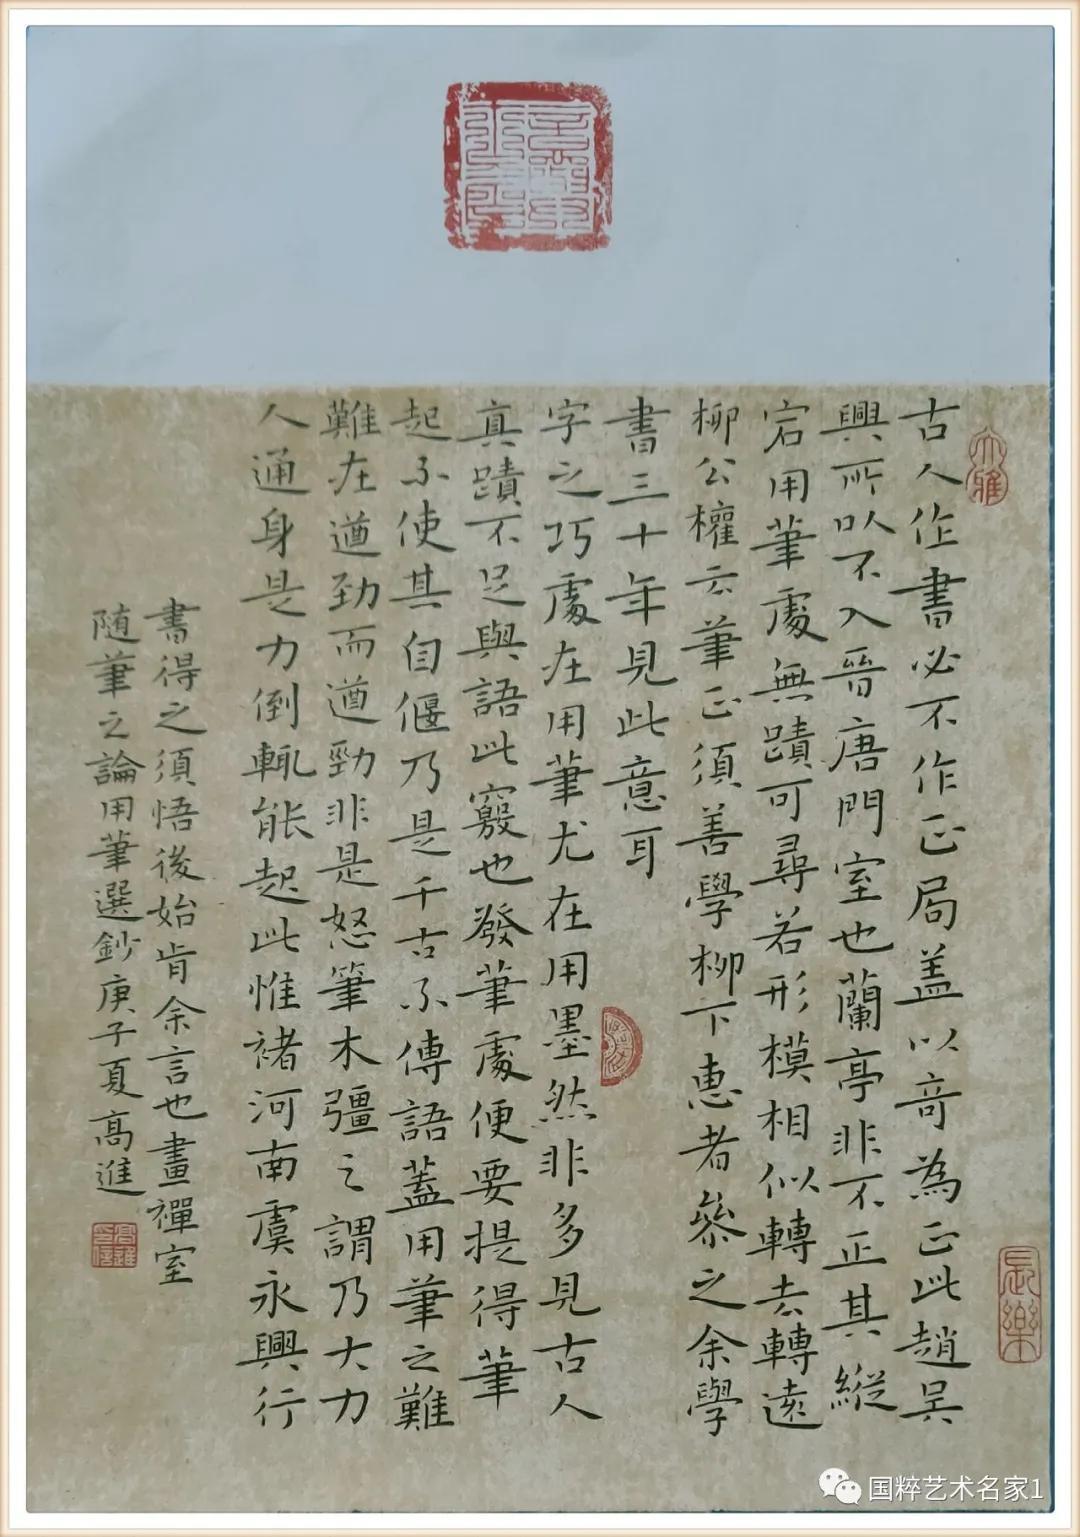 大雅
長樂
古人作書必不作正局盖以奇為正此趙吴
興所以不入晉唐門室也蘭亭非不正其縱
宕用筆處無蹟可尋若形模相似轉去轉遠
柳公權云筆正須善學柳下惠者叅之余學
書三十年見此意耳
字之巧處在用筆尤在用墨然非多見古人
真蹟不足與語此竅也發筆處便要提得筆
起不使其自偃乃是千古不傳語蓋用筆之難
難在遒劲而遒勁非是怒筆木彊之謂乃大力
人通身是力倒輒能起此惟褚河南虞永興行
書得之須悟後始肯余言也畫禪室
随筆之論用筆選鈔庚子夏高進
国粹艺术名家1